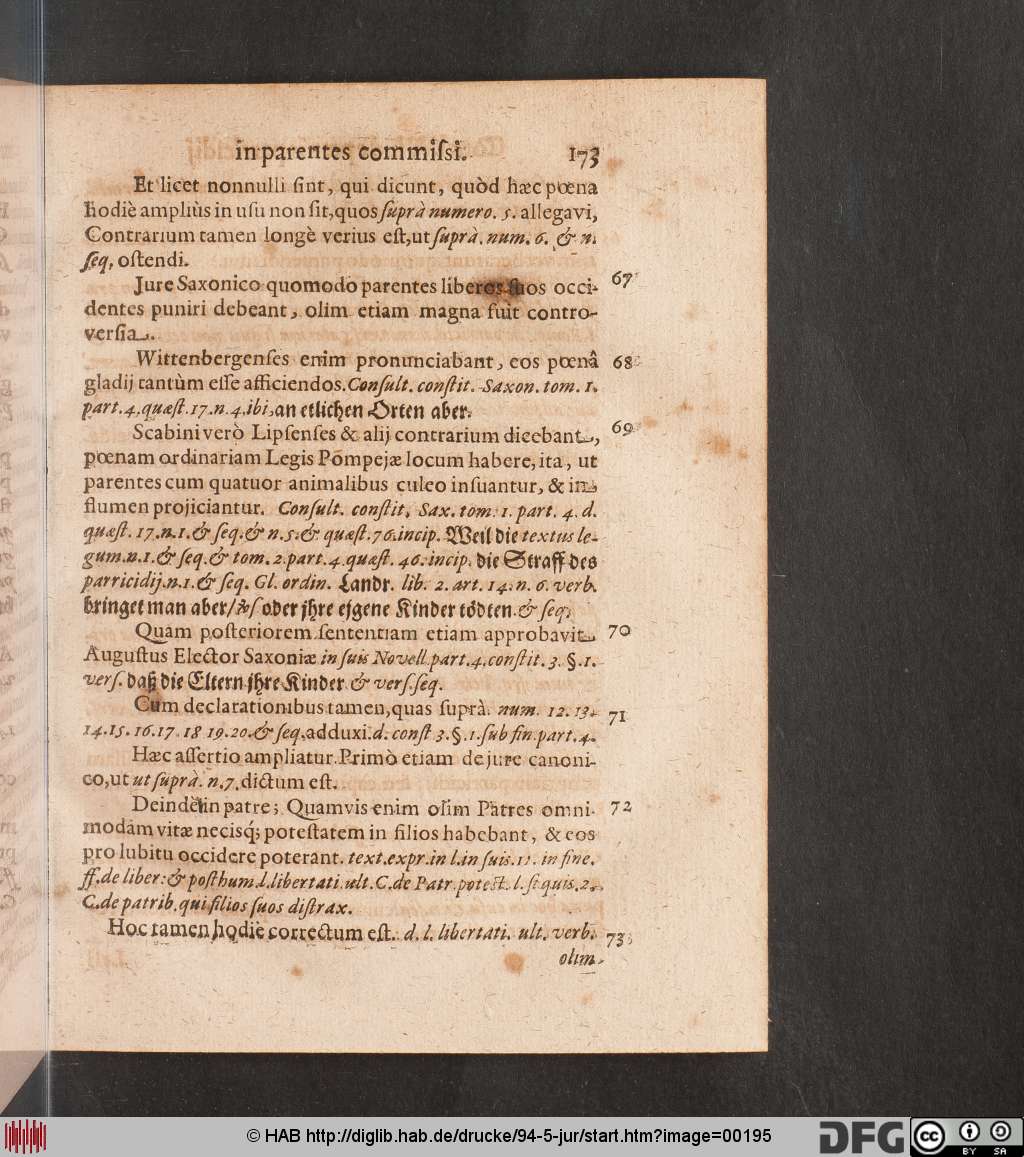 in parentes commissi. 173
Et licet nonnulli sint, qui dicunt, quòd hæc pœna
hodiè ampliùs in usu non sit, quos suprà numero. 5. allegavi,
Contrarium tamen longè verius est, ut suprà. num. 6. & n.
seq, ostendi.
Jure Saxonico quomodo parentes liberos suos occi- 67
dentes puniri debeant, olim etiam magna fuit contro-
versia.
Wittenbergenses enim pronunciabant, eos pœnâ 68
gladij tantùm esse afficiendos. Consult. constit. Saxon. tom. 1.
part. 4. quæst. 17. n. 4. ibi, an etlichen Orten aber.
Scabini verò Lipsenses & alij contrarium dicebant, 69
pœnam ordinariam Legis Pompejæ locum habere, ita, ut
parentes cum quatuor animalibus culeo insuantur, & in
flumen projiciantur. Consult. constit. Sax. tom. 1. part. 4. d.
quæst. 17. n. 1. & seq. & n. 5. & quæst. 76. incip. Weil die textus le-
gum. n. 1. & seq. & tom. 2. part. 4. quæst. 46. incip. die Straff des
parricidij. n. 1. & seq. Gl. ordin. Landr. lib. 2. art. 14. n. 6. verb.
bringet man aber/ oder jhre eigene Kinder tödten. & seq.
Quam posteriorem sententiam etiam approbavit 70
Augustus Elector Saxoniæ in suis Novell. part. 4. constit. 3. §. 1.
vers. daß die Eltern jhre Kinder & vers. seq.
Cum declarationibus tamen, quas suprà. num. 12. 13. 71
14. 15. 16. 17. 18 19. 20. & seq. adduxi. d. const 3. §. 1. sub fin. part. 4.
Hæc assertio ampliatur. Primò etiam de jure canoni-
co, ut ut suprà. n. 7. dictum est.
Deindè in patre; Quamvis enim olim Patres omni- 72
modam vitæ necisq; potestatem in filios habebant, & eos
pro lubitu occidere poterant. text. expr. in l. in suis. 11. in fine.
ff. de liber: & posthum. l. libertati. ult. C. de Patr. potest. l. si quis. 2.
C. de patrib. qui filios suos distrax.
Hoc tamen hodiè correctum est. d. l. libertati. ult. verb. 73
olim.
© HAB http://diglib.hab.de/drucke/94-5-jur/start.htm?image=00195
DFG
cc
BY SA